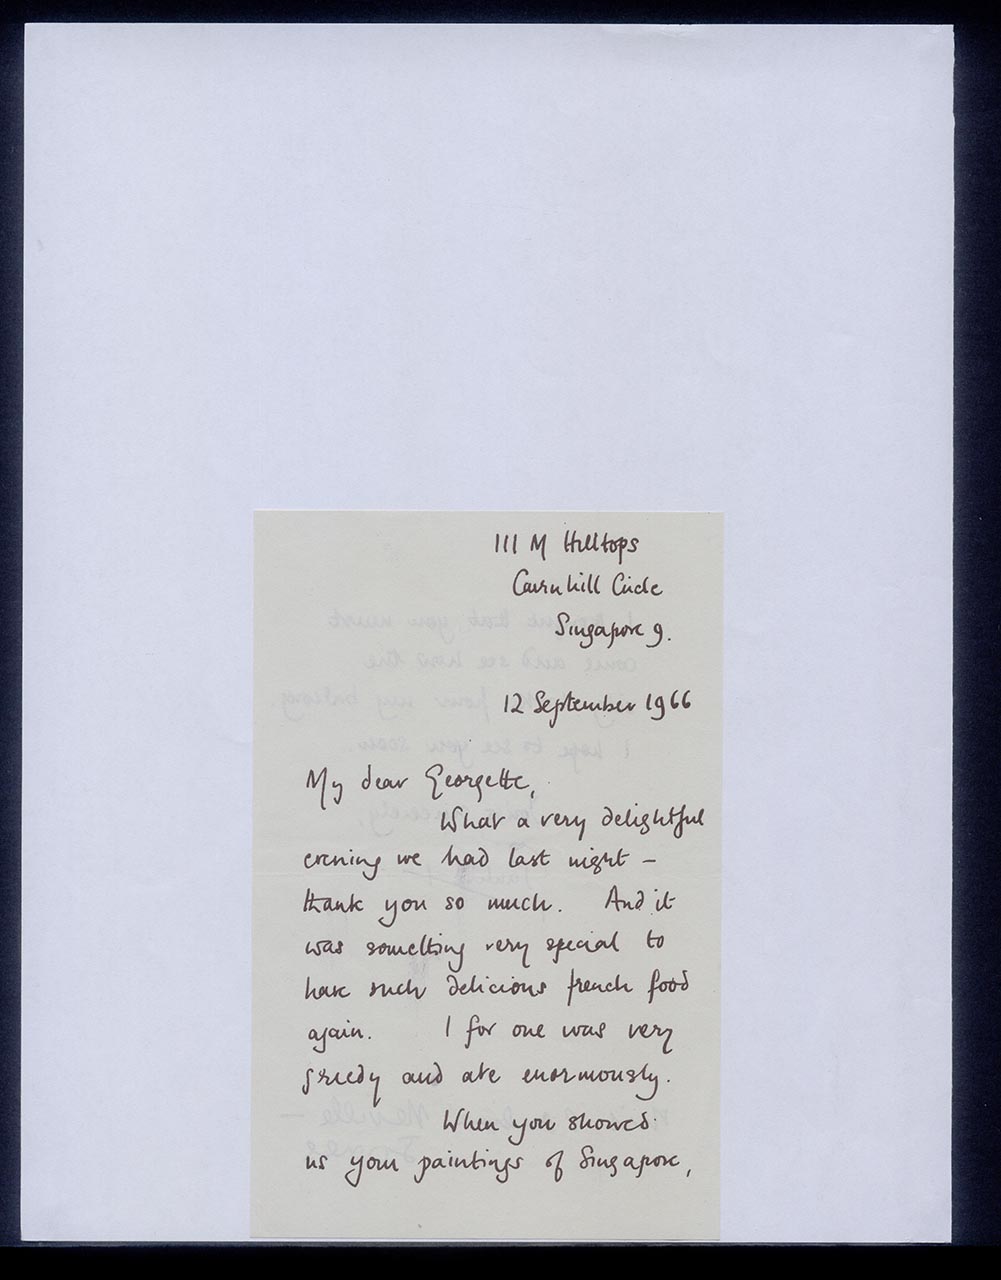 111 M Hilltops
Cairnhill Circle
Singapore 9.
12 September 1966
My dear Georgette,
What a very delightful
evening we had last night –
thank you so much. And it
was something very special to
have such delicious french food
again. I for one was very
greedy and ate enormously.
When you showed
us your paintings of Singapore,